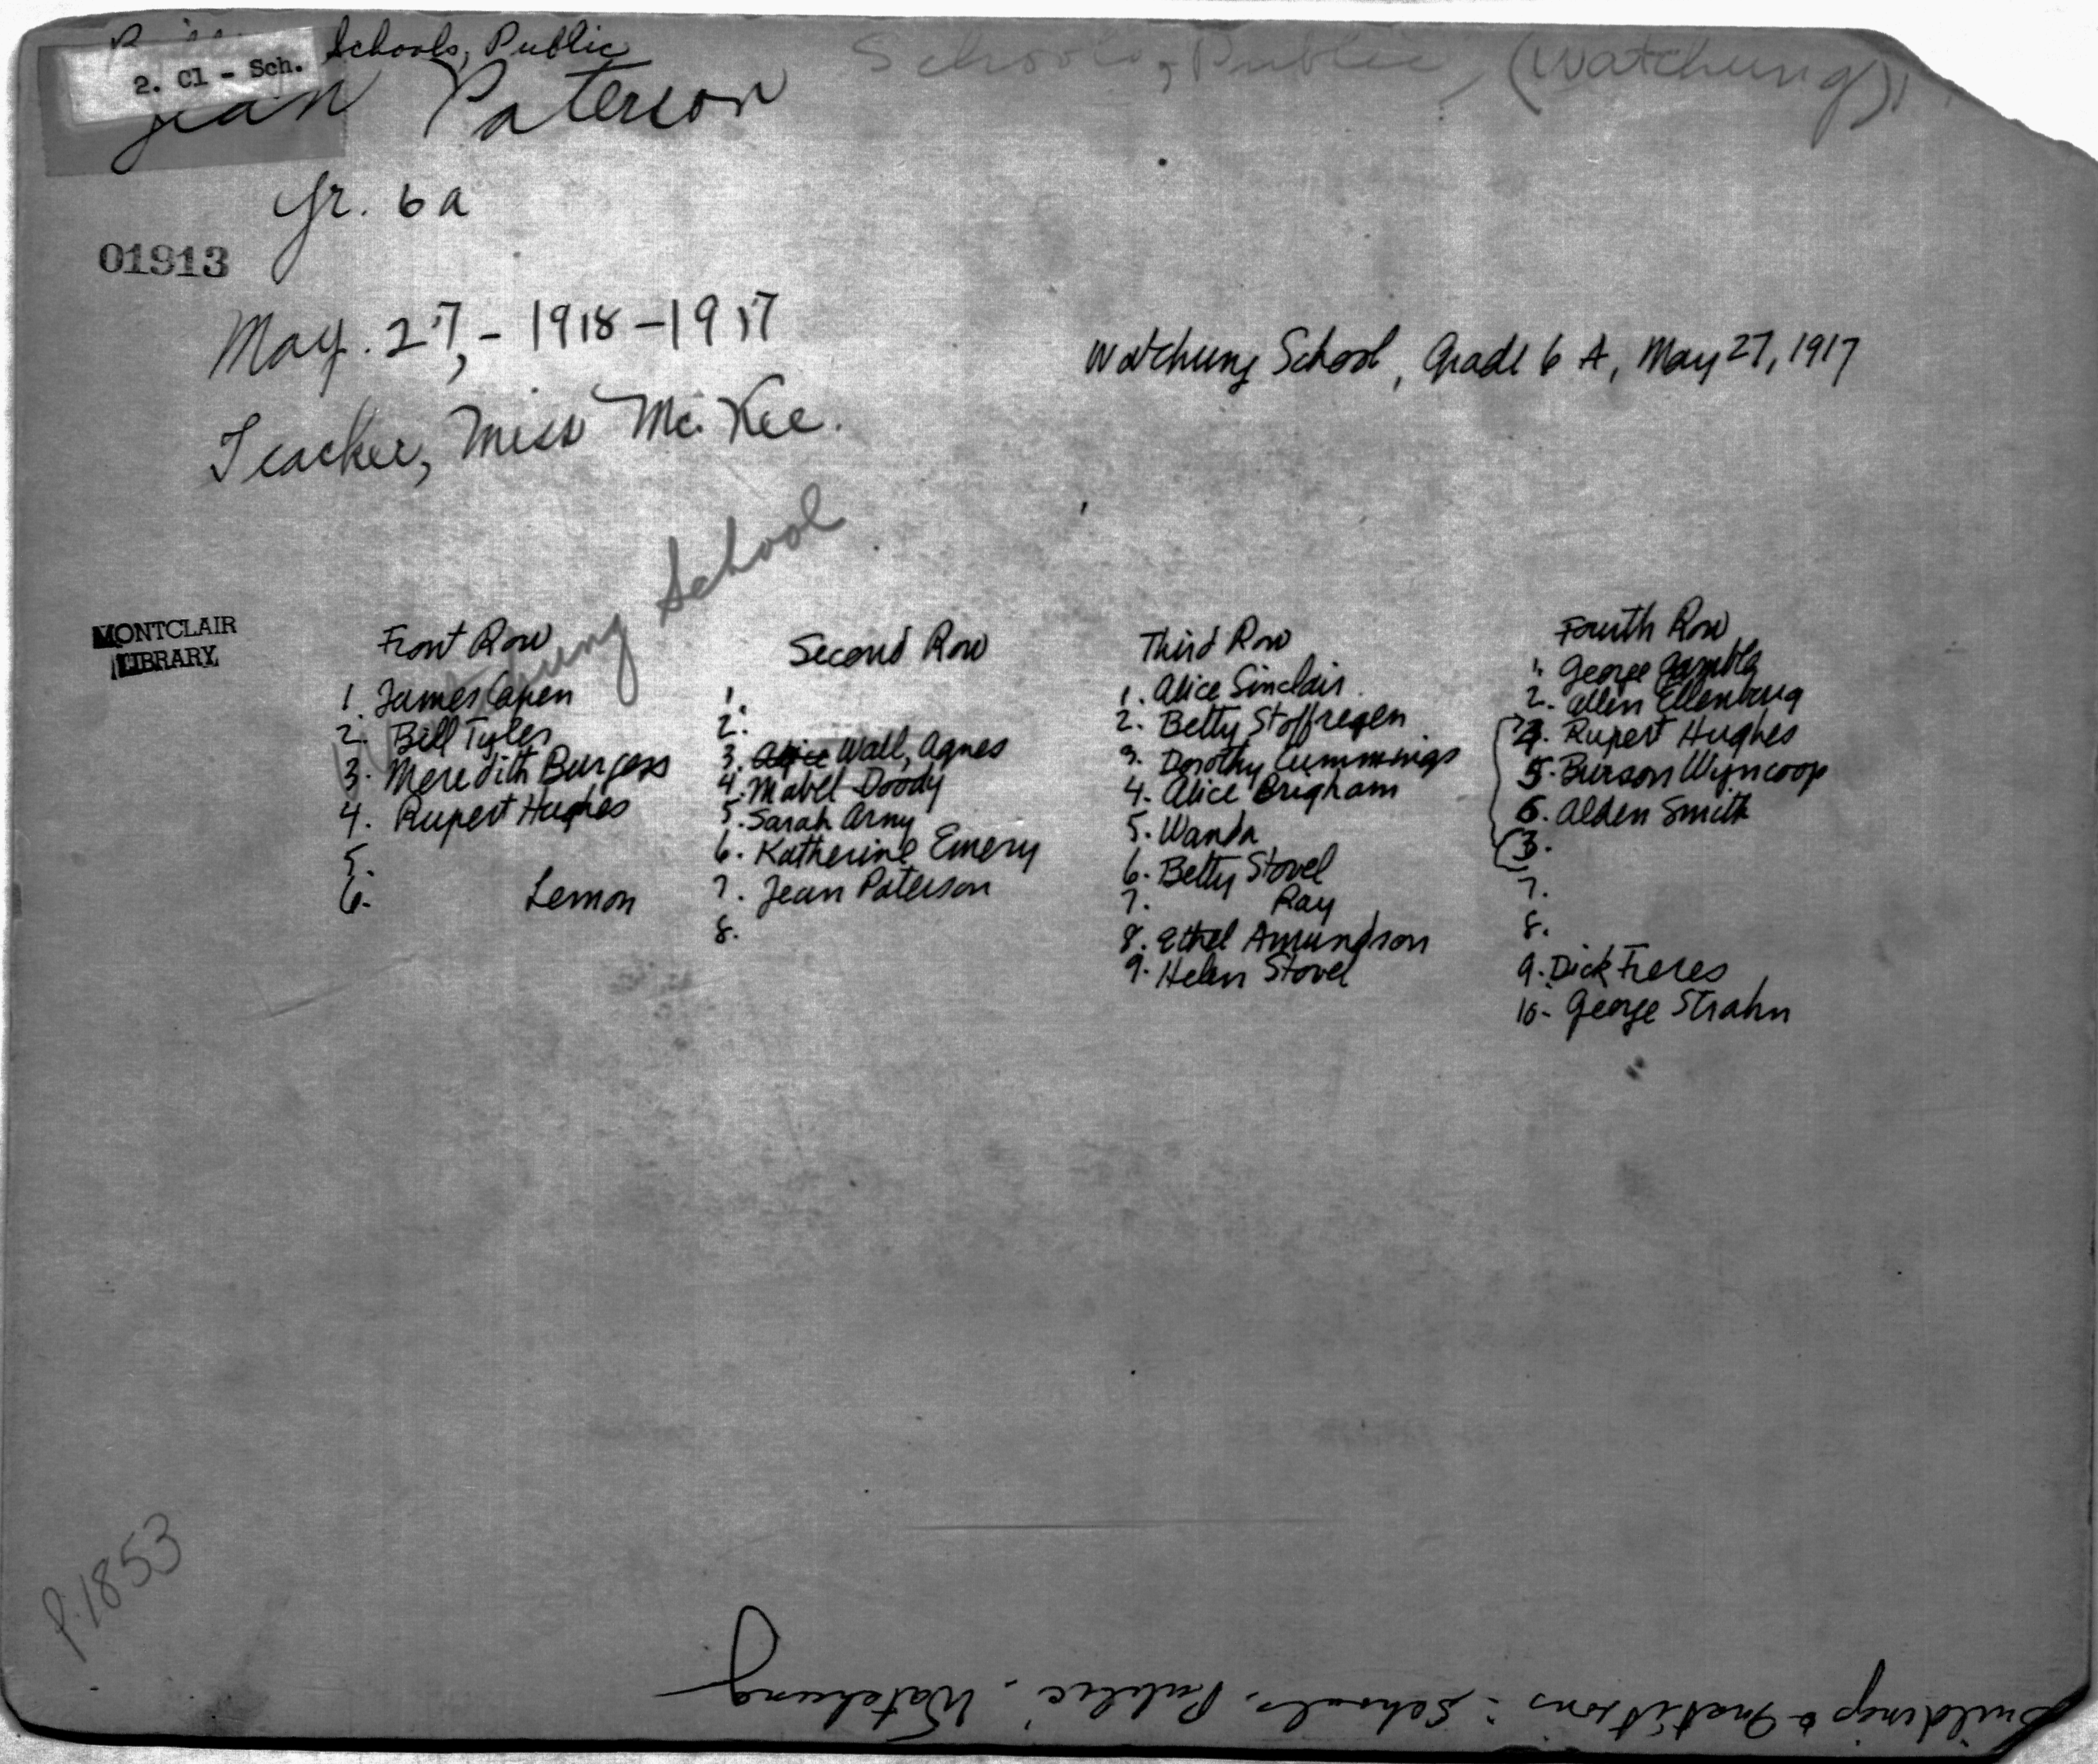 Schools, Public
2. Cl - Sch.
Schools, Public (Watchung)
Jean Paterson
Gr. 6a
01913
May. 27, - 1918-1917
Watchung School, Grade 6 A, May 27, 1917
Teacher, Miss Mc. Kee.
Watchung School
MONTCLAIR
LIBRARY
Front Row
1. James Capen
2. Bill Tyler
3. Meredith Burgess
4. Rupert Hughes
5.
6. Lemon
Second Row
1.
2.
3. Alice Wall, Agnes
4. Mabel Doody
5. Sarah Army
6. Katherine Emery
7. Jean Paterson
8.
Third Row
1. Alice Sinclair
2. Betty Stoffregen
3. Dorothy Cummmings
4. Alice Brigham
5. Wanda
6. Betty Stovel
7. Ray
8. Ethel Amundson
9. Helen Stovel
Fourth Row
1. George Gambla
2. Allen Ellenbrug
4. Rupert Hughes
5. Burson Wyncoop
6. Alden Smith
3.
7.
8.
9. Dick Freres
10- George Strahn
P.1853
Buildings & Institions: Schools, Public, Watchung